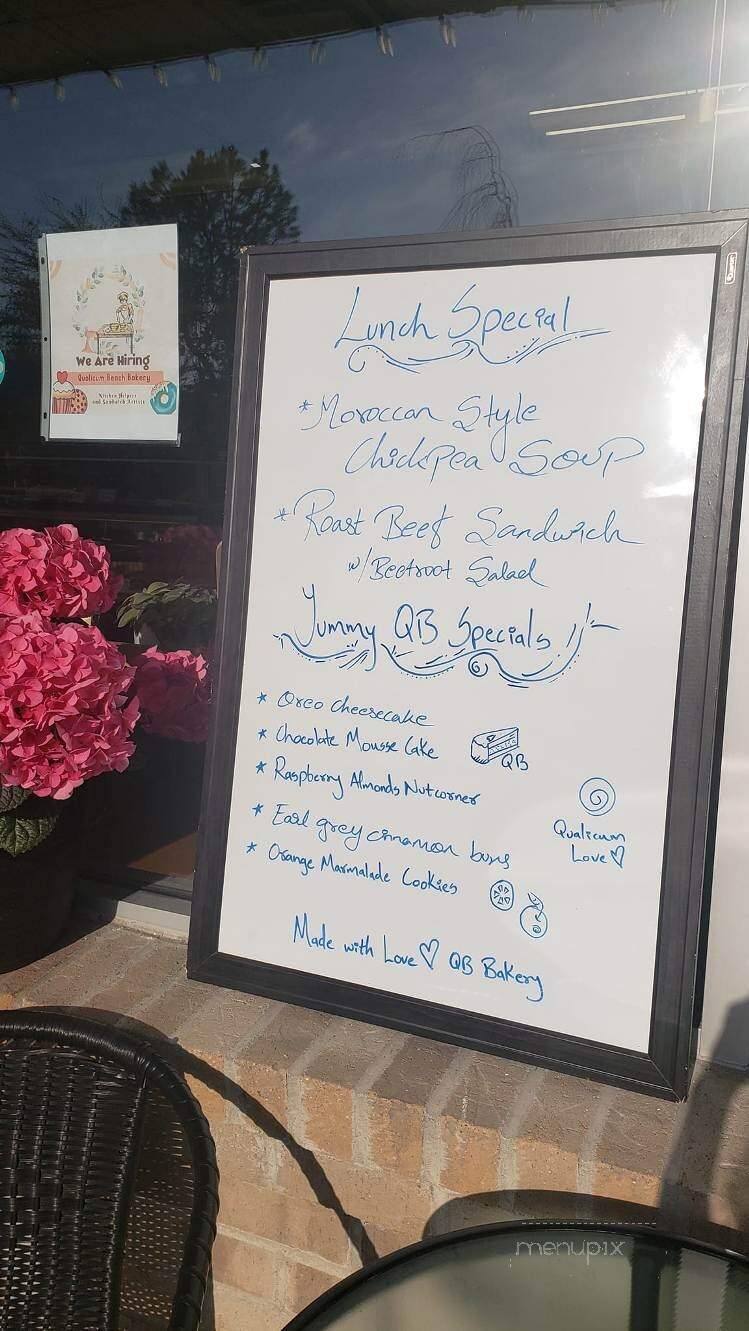 We Are Hiring
Qualicum Beach Bakery
Kitchen Helpers
and Sandwich Artists
Lunch Special
*Moroccan Style
Chickpea Soup
*Roast Beef Sandwich
w/Beetroot Salad
Yummy QB Specials
* Oreo cheesecake
* Chocolate Mousse Cake
QB
* Raspberry Almonds Nutcorner
* Earl grey cinnamon buns
Qualicum
Love♡
* Orange Marmalade Cookies
Made with Love♡ QB Bakery
menupix